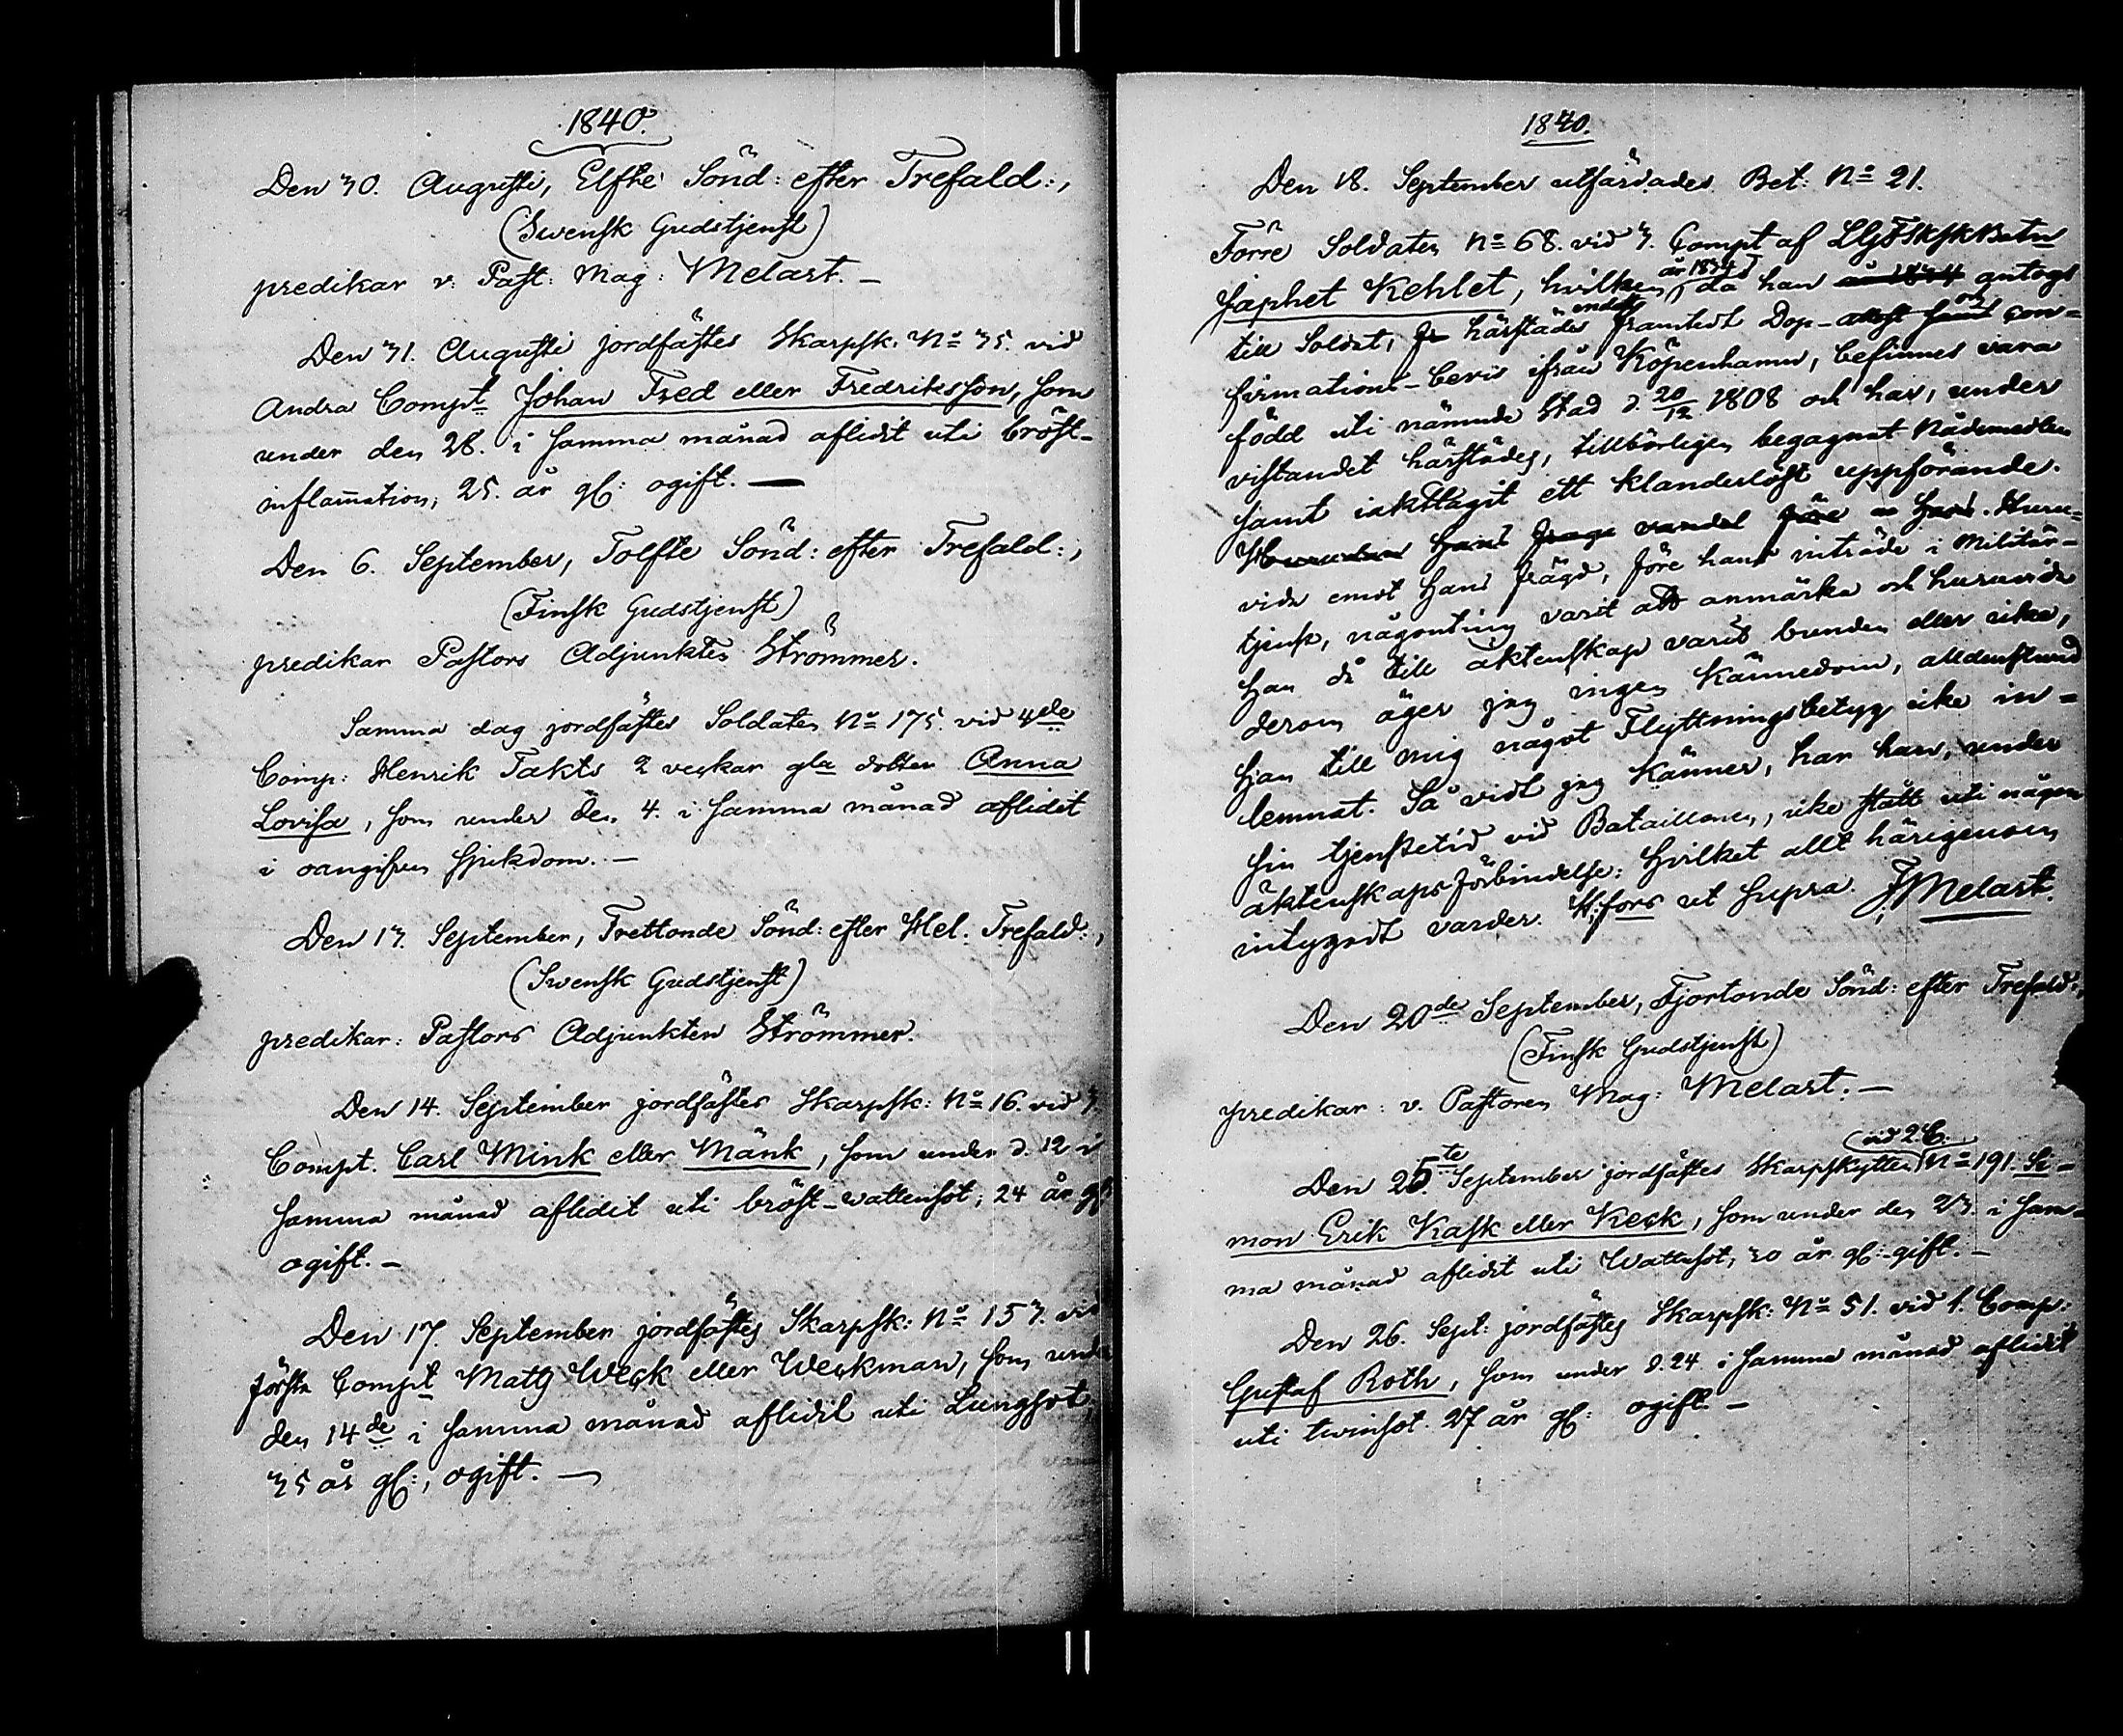 1840.
Den 30. Augusti, Elfte Sönd: efter Trefald:,
(Swensk Gudstjenst)
predikar v: Past: Mag: Melart. –
Den 31. Augusti jordfästes Skarpsk: No 35. vid
Andra Compt Johan Fred eller Fredriksson, som
under den 28. i samma månad aflidit uti bröst-
inflamation, 25. år gl: ogift. —
Den 6. September, Tolfte Sönd: efter Trefald:,
(Finsk Gudstjenst)
predikar Pastors Adjunkten Strömmer.
Samma dag jordfästes Soldaten No 175. vid 4de
Comp: Henrik Takts 2 veckar gla dotter Anna
Lovisa, som under den 4. i samma månad aflidit
i oangifven sjukdom. –
Den 13. September, Trettonde Sönd: efter Hel. Trefald:,
(Swensk Gudstjenst)
predikar: Pastors Adjunkten Strömmer.
Den 14. September jordfästes Skarpsk: No 16. vid 3.
Compt. Carl Mink eller Mänk, som under d. 12 i
samma månad aflidit uti bröst-wattensot, 24 år gl:
ogift. –
Den 17. September jordfästes Skarpsk: No 153. vid
första Compt Matts Weck eller Weckman, som under
den 14de i samma månad aflidit uti Lungsot,
35 år gl:, ogift. —
1840.
Den 18. September utfärdades Bet: No 21.
Förre Soldaten No 68. vid 3. Compt af LGFSkskBatn
Japhet Kehlet, hvilken, år 1834 då han år 1834 antogs
till Soldat, härstädes endast framtedt Dop- och Con-
firmations-bevis ifrån Köpenhamn, befinnes vara
född uti nämnde Stad d. 20/12 1808 och har, under
vistandet härstädes, tillbörligen begagnat Nådemedlen
samt iakttagit ett klanderlöst uppförande.
Huruvida hans frägd vandel före hans. Huru-
vida emot hans frägd, före hans inträde i Militär-
tjenst, någonting varit att anmärka och huruvida
han då till äktenskap varit bunden eller icke,
derom äger jag ingen kännedom, alldenstund
han till mig något Flyttningsbetyg icke in-
lemnat. Så vidt jag känner, har han, under
sin tjenstetid vid Bataillonen, icke stått uti någon
äktenskapsförbindelse: Hvilket allt härigenom
intygadt varder. H:fors ut supra. J Melart.
Den 20de September, Fjortonde Sönd: efter Trefald:,
(Finsk Gudstjenst)
predikar: v. Pastoren Mag: Melart. –
Den 25te September jordfästes Skarpskytten vid 2 C. No 191. Si-
mon Erik Kask eller Keck, som under den 23. i sam-
ma månad aflidit uti Wattusot, 30 år gl: gift. –
Den 26. Sept: jordfästes Skarpsk: No 51. vid 1. Comp:
Gustaf Roth, som under d. 24 i samma månad aflidit
uti twinsot. 27 år gl: ogift. –